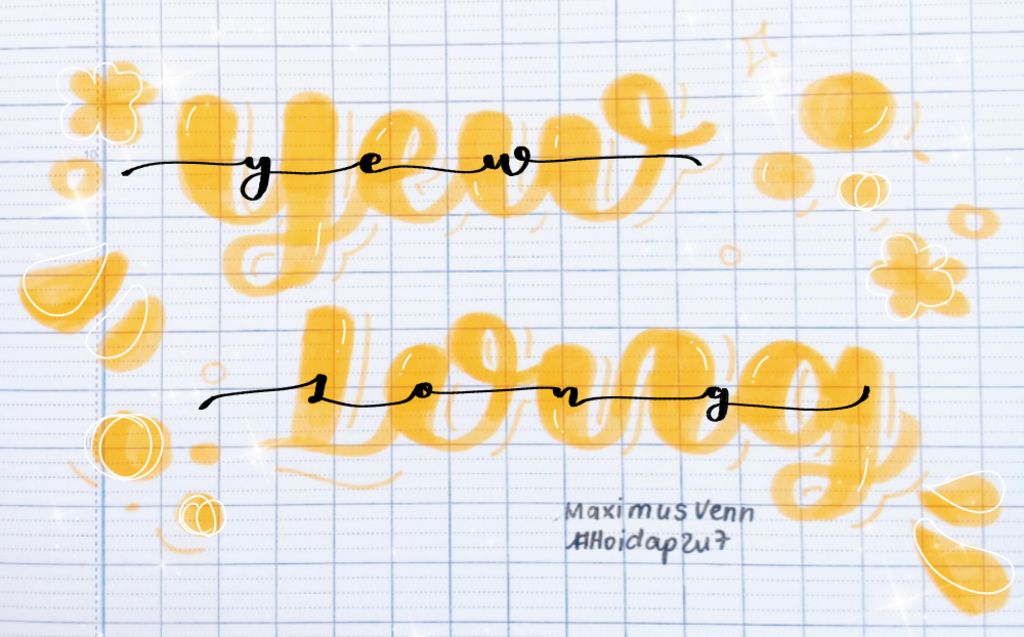 yew
yew
Long
Long
Maximus Venn
#Hoidap247